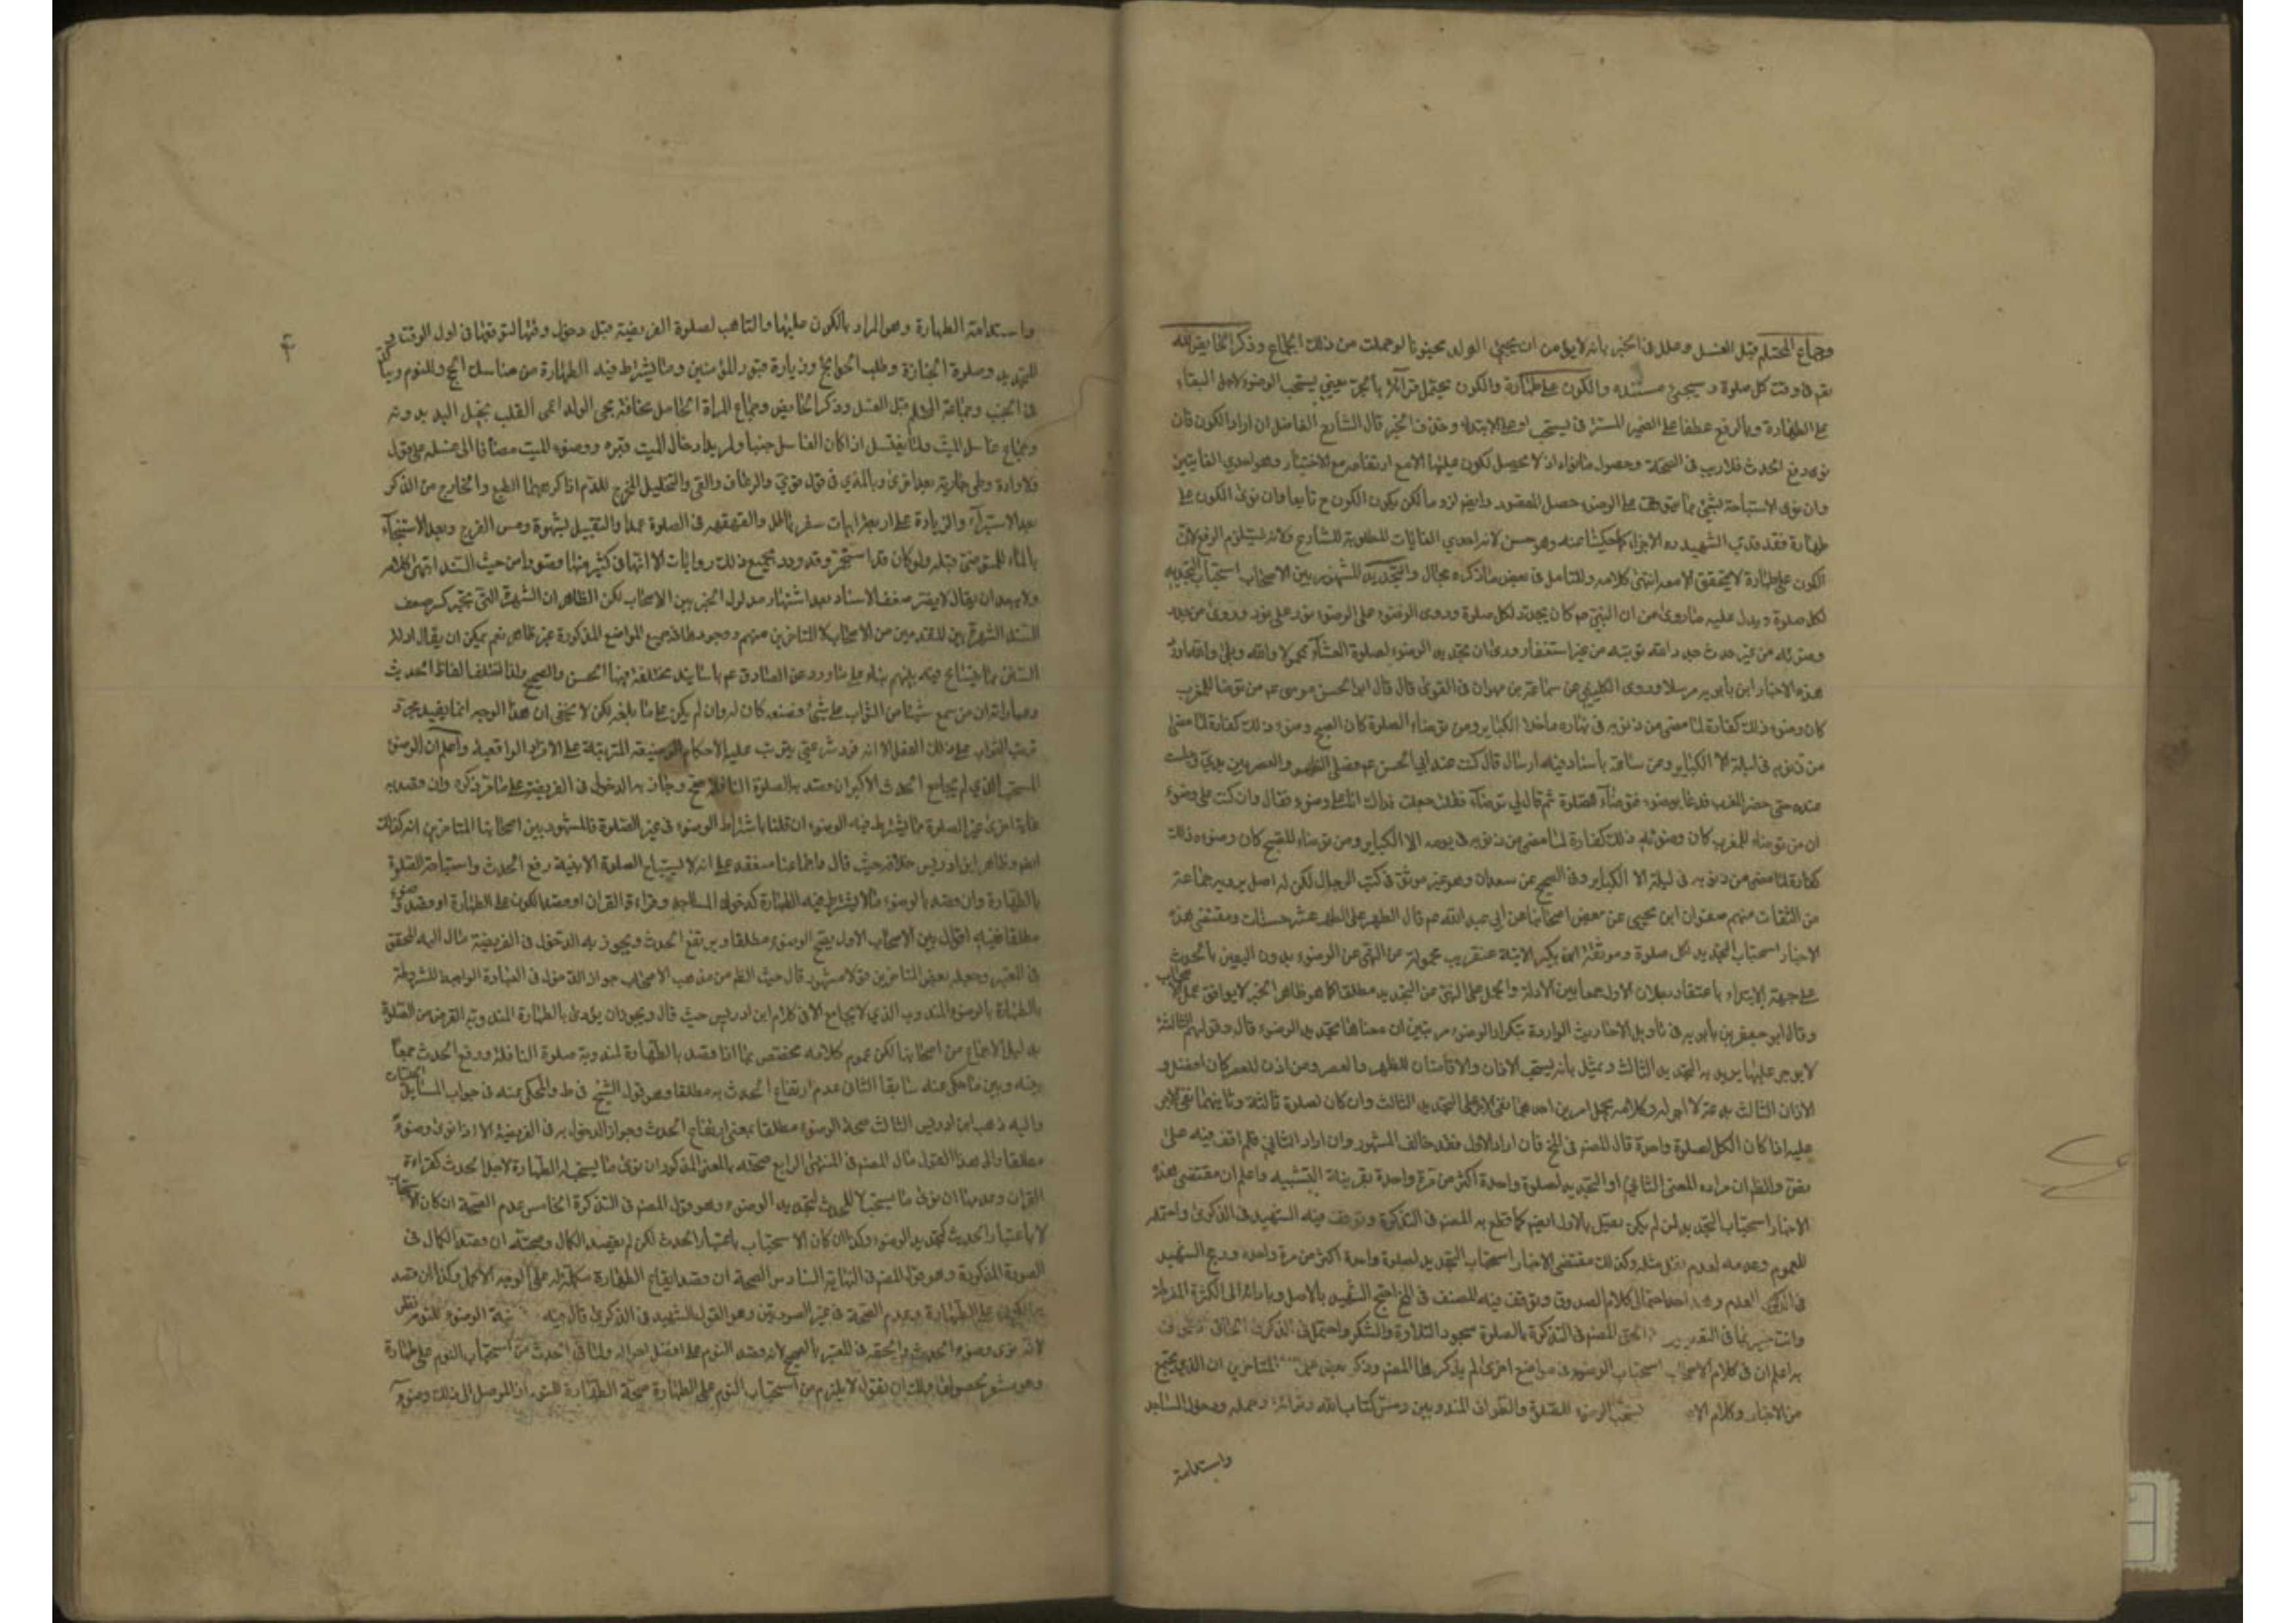 وجماع المحتلم قبل الغسل وعلل في الخبر بانه لا يؤمن ان يجيئ الولد مجنونا لو حملت من ذلك الجماع وذكر الحايض لله
تعم في وقت كل صلوة وسيجئ مستنده والكون على طهارة والكون يحتمل قرائته بالجر يعني يستحب الوضوء لاجل البقاء
على الطهارة وبالرفع عطفا على الضمير المستتر في يستحب او على الابتداء وحذف الخبر قال الشارح الفاضل ان اراد الكون فان
نوى رفع الحدث فلا ريب في الصحة وحصول ما نواه اذ لا يحصل الكون عليها الا مع ارتفاعه مع الاختيار وهو احدي الغايتين
وان نوى الاستباحة لشئ مما يتوقف على الوضوء حصل المقصود وايضم لزوما لكن يكون الكون ح تابعا وان نوى الكون على
طهارة فقد قرب الشهيد ره الاجزاء كما حكيناه عنه وهو حسن لانه احدي الغايات المطلوبة للشارع ولانه يستلزم الرفع لان
الكون على طهارة لا يتحقق الا معه انتهى كلامه وللتامل في بعض ما ذكره مجال والتجديد المشهور بين الاصحاب استحباب التجديد
لكل صلوة ويدل عليه ما روى من ان النبي ص كان يجدد لكل صلوة وروى الوضوء على الوضوء نور على نور وروى من جدد
وضوئه من غير حدث جدد الله توبته من غير استغفار وروى ان تجديد الوضوء لصلوة العشاء يمحو لا والله وبلى والله اورد
هذه الاخبار ابن بابويه مرسلا وروى الكليني عن سماعة بن مهران في القوى قال قال ابو الحسن موسى عم من توضا للمغرب
كان وضوءه ذلك كفارة لما مضى من ذنوبه في نهاره ما خلا الكباير ومن توضاء لصلوة كان الصبح وضوءه ذلك كفارة لما مضى
من ذنوبه في ليلة الا الكباير وعن سماعة باسناد فيه ارسال قال كنت عند ابي الحسن عم فصلى الظهر والعصر بين يدي وجلست
عنده حتى حضر المغرب فدعا بوضوء فتوضاء للصلوة ثم قال لي توضاء فقلت جعلت فداك انا على وضوء فقال وان كنت على وضوء
ان من توضاء للمغرب كان وضوئه ذلك كفارة لما مضى من ذنوبه في يومه الا الكباير ومن توضاء للصبح كان وضوءه ذلك
كفارة لما مضى من ذنوبه في ليلته الا الكباير وفي الصحيح عن سعدان وهو غير موثق في كتب الرجال لكن له اصل يرويه جماعة
من الثقات منهم صفوان ابن يحيى عن بعض اصحابنا عن ابي عبد الله عم قال الطهر على الطهر عشر حسنات ومقتضى هذه
الاخبار استحباب التجديد لكل صلوة وموثقة ابن بكير الاتية عنقريب محمولة عن النهي عن الوضوء بدون اليقين بالحدث
على جهة الابتداء باعتقاد بطلان الاول جمعا بين الادلة والحمل على النهي عن التجديد مطلقا كما هو ظاهر الخبر لا يوافق عمل الاصحاب
وقال ابو جعفر بن بابويه في تاويل الاحاديث الواردة بتكرار الوضوء مرتين ان معناها تجديد الوضوء قال وقولهم الثالثة
لا يوجر عليها يريد به التجديد الثالث ويمثل بانه يستحب الاذان والاقامتان للظهر والعصر ومن اذن للعصر كان افضل و
الاذان الثالث بدعة لا اجر له وكلامه يحتمل امرين احدهما نفى الاجر على التجديد الثالث وان كان لصلوة ثالثة وثانيهما نفى الاجر
عليه اذا كان الكل لصلوة واحدة قال المصم في المخ فان اراد الاول فقد خالف المشهور وان اراد الثاني فلم اقف فيه على
نص والظم ان مراده المعنى الثاني او التجديد لصلوة واحدة اكثر من مرة واحدة بقرينة التشبيه واعلم ان مقتضى هذه
الاخبار استحباب التجديد لمن لم يكن يصل بالاول ايضم كما قطع به المصم في التذكرة وتوقف فيه الشهيد في الذكرى واحتمله
للعموم وعدمه لعدم نقل مثله وكذلك مقتضى الاخبار استحباب التجديد لصلوة واحدة اكثر من مرة واحدة ورجح الشهيد
في الذكرى العدم وهذا احد احتمالي كلام الصدوق وتوقف فيه المصنف في المخ احتج الشهيد بالاصل وبادائه الى الكثرة المفرطة
وانت خبير بما في التقديرين والحق المصم في التذكرة بالصلوة سجود التلاوة والشكر واحتمل في الذكرى الحاق الطواف
به اعلم ان في كلام الاصحاب استحباب الوضوء في مواضع اخرى لم يذكرها المصم وذكر بعض المتاخرين ان الذي يجتمع
من الاخبار وكلام الا يستحب الوضوء للصلوة والطواف المندوبين ومس كتاب الله وقرائته وحمله ودخول المساجد
واستدامة
۴
واستدامة الطهارة وهو المراد بالكون عليها والتاهب لصلوة الفريضة قبل دخول وقتها لتوقعها في اول الوقت و
للتجديد وصلوة الجنازة وطلب الحوائج وزيارة قبور المؤمنين وما لا يشترط فيه الطهارة من مناسك الحج وللنوم ويتاكد
في الجنب وجماع المحتلم قبل الغسل وذكر الحايض وجماع المراة الحامل مخافة مجئ الولد اعمى القلب بخيل اليد بدونه
وجماع غاسل الميت ولما يغتسل اذا كان الغاسل جنبا ولمريد ادخال الميت قبره ووضوء الميت مضافا الى غسله على قول
ولارادة وطى جارية بعد اخرى وبالمذي في قول قوي والرعاف والقى والتخليل المخرج للدم اذا كرههما الطبع والخارج من الذكر
بعد الاستبراء والزيادة على اربعة ابيات شعر باطل والقهقهة في الصلوة عمدا والتقبيل بشهوة ومس الفرج وبعد الاستنجاء
بالماء للمتوضئ قبله ولو كان قد استجمر وقد ورد بجميع ذلك روايات الا ان في كثير منها قصورا من حيث السند انتهى كلامه
ولا يبعد ان يقال لا يضر ضعف الاسناد بعد اشتهار مدلول الخبر بين الاصحاب لكن الظاهر ان الشهرة التي تجبر كسر ضعف
السند الشهرة بين المتقدمين من الاصحاب لا المتاخرين منهم ووجودها في جميع المواضع المذكورة غير ظاهر نعم يمكن ان يقال ادلة
السنن مما يتسامح فيه بينهم بناء على ما ورد عن الصادق عم باسانيد مختلفة فيها الحسن والصحيح ولذا اختلف الفاظ الحديث
وعباراته ان من سمع شيئا من الثواب على شئ فصنعه كان له وان لم يكن على ما بلغه لكن لا يخفى ان هذا الوجه انما يفيد مجرد
ترتب الثواب على ذلك الفعل لا انه فرد شرعي يترتب عليه الاحكام الوضعية المترتبة على الافراد الواقعية واعلم ان الوضوء
المستحب الذي لم يجامع الحدث الاكبر ان قصد به الصلوة النافلة صح وجاز به الدخول في الفريضة على ما مر ذكره وان قصد به
غاية اخرى غير الصلوة مما يشترط فيه الوضوء ان قلنا باشتراط الوضوء في غير الصلوة فالمشهور بين اصحابنا المتاخرين انه كذلك
ايضم وظاهر ابن ادريس خلافه حيث قال واجماعنا منعقد على انه لا يستباح الصلوة الا بنية رفع الحدث واستباحة الصلوة
بالطهارة وان قصد بالوضوء ما لا يشترط فيه الطهارة كدخول المساجد وقراءة القران او قصد الكون على الطهارة او قصد وضوء
مطلقا ففيه اقوال بين الاصحاب الاول يصح الوضوء مطلقا ويرتفع الحدث ويجوز به الدخول في الفريضة مال اليه المحقق
في المعتبر وجعله بعض المتاخرين قولا مشهور قال حيث الظم من مذهب الاصحاب جواز الدخول في العبادة الواجبة المشروطة
بالطهارة بالوضوء المندوب الذي لا يجامع الا في كلام ابن ادريس حيث قال ويجوز ان يؤدى بالطهارة المندوبة الفرض من الصلوة
بدليل الاجماع من اصحابنا لكن عموم كلامه مختص بما اذا قصد بالطهارة لمندوبة صلوة النافلة ورفع الحدث جمعا
بينه وبين ما حكى عنه سابقا الثاني عدم ارتفاع الحدث به مطلقا وهو قول الشيخ في ط والمحكى عنه في جواب المسايل الحلبيات
واليه ذهب ابن ادريس الثالث صحة الوضوء مطلقا بمعنى ارتفاع الحدث وجواز الدخول به في الفريضة الا اذا نوى وضوء
مطلقا والى هذا القول مال المصم في المنتهى الرابع صحته بالمعنى المذكور ان نوى ما يستحب له الطهارة لاجل الحدث كقراءة
القران وعدمها ان نوى ما يستحب لا للحدث كتجديد الوضوء وهو قول المصم في التذكرة الخامس عدم الصحة ان كان الاستحباب
لا باعتبار الحدث كتجديد الوضوء وكذا ان كان الاستحباب باعتبار الحدث لكن لم يقصد الكمال وصحته ان قصد الكمال في
الصورة المذكورة وهو قول المصم في النهاية السادس الصحة ان قصد ايقاع الطهارة مكملة له على الوجه الاكمل وكذا ان قصد
الكون على الطهارة وعدم الصحة في غير الصورتين وهو القول الشهيد في الذكرى قال فيه نية الوضوء للنوم نظر
لانه نوى وضوء الحدث والحقه في المعتبر بالصحيح لانه قصد النوم على افضل احواله ولما في الحدث من استحباب النوم على طهارة
وهو مشعر بحصولها ولك ان تقول لا يلزم من استحباب النوم على الطهارة صحة الطهارة للنوم اذ الموصل الى ذلك وضوء